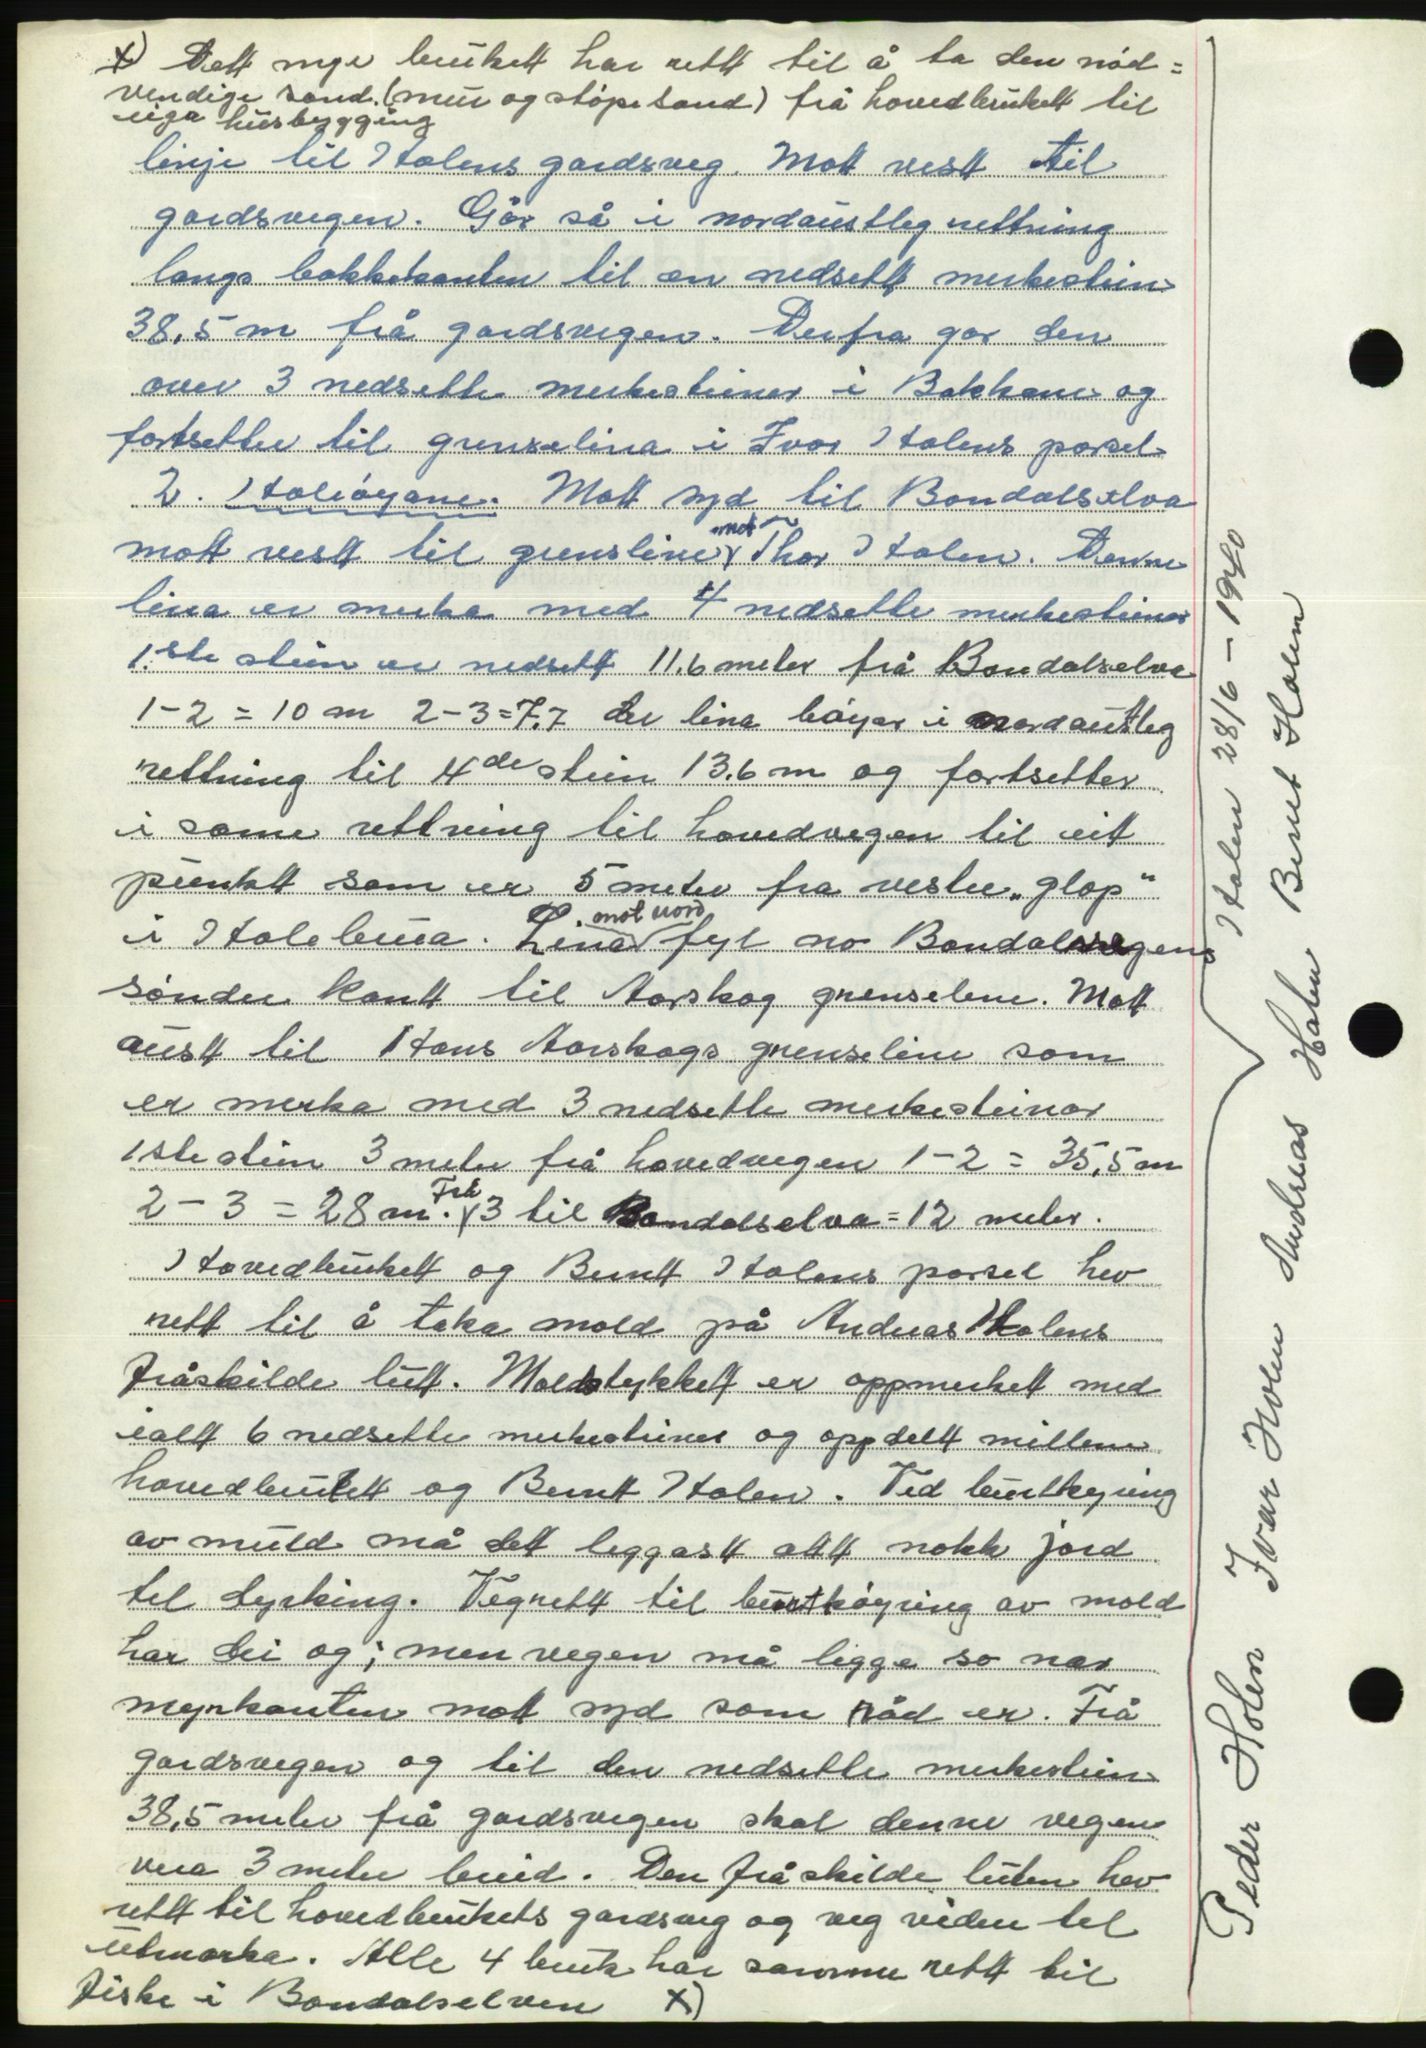 x) Dett nye bruket har rett til å ta den nød=
vendige sand. (mur og støpesand) frå hovedbruket til
eiga husbygging
linje til Holens gardsveg. Mott vestt til
gardsvegen. Går så i nordaustleg rettning
langs bakkekanten til en nedsett merkestein
38,5 m frå gardsvegen. Derfra gar den
over 3 nedsette merkesteiner i Bakkane og
fortsetter til grenselina i Ivar Holens parsel
2. Holeøyane. Mott syd til Bondalselva
mott vestt til grensline mot Thor Holen. Denne
lina er merka med 4 nedsette merkesteinar
1.ste stein er nedsett 11.6 meter frå Bondalselva
1-2 = 10 m 2-3=7,7 der lina bøyer i nordaustleg
rettning til 4de stein 13.6 m og fortsetter
i same rettning til hovedvegen til eit
punktt som er 5 meter fra vestre „glop"
i Holebrua. Lina mot nord fyl no Bondalsvegens
søndre kantt til Aarskog grenseline. Mott
austt til Hans Aarskogs grenseline som
er merka med 3 nedsette merkesteinar
1ste stein 3 meter frå hovedvegen 1-2 = 35,5 m
2-3 = 28 m. Frå 3 til Bondalselva = 12 meter.
Hovedbrukett og Berntt Holens parsel hev
rett til å taka mold på Andreas Holens
fråskilde lutt. Moldstykkett er oppmerkett med
ialtt 6 nedsette merkesteiner og oppdeltt millem
hovedbrukett og Berntt Holen. Ved burtkøyring
av muld må dett leggastt att nokk jord
til dyrking. Vegrett til burtkøyring av mold
har dei og; men vegen må ligge so nær
myrkanten mott syd som råd er. Frå
gardsvegen og til den nedsette merkestein
38,5 meter frå gardsvegen skal denne vegen
vera 3 meter breid. Den fråskilde luten hev
rett til hovedbrukets gardsveg og veg vidare til
utmarka. Alle 4 bruk har samme rett til
fiske i Bondalselven x)
Holen 28/6 - 1940
Peder Holen Ivar Holen Andreas Holen Bernt Holen